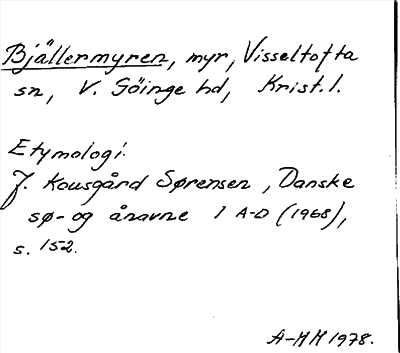 Bjällermyren, myr, Visseltofta
sn, V. Göinge hd, Krist. l.
Etymologi:
J. Kousgård Sørensen, Danske
sø- og ånavne 1 A-D (1968),
s. 152.
A-MM 1978.